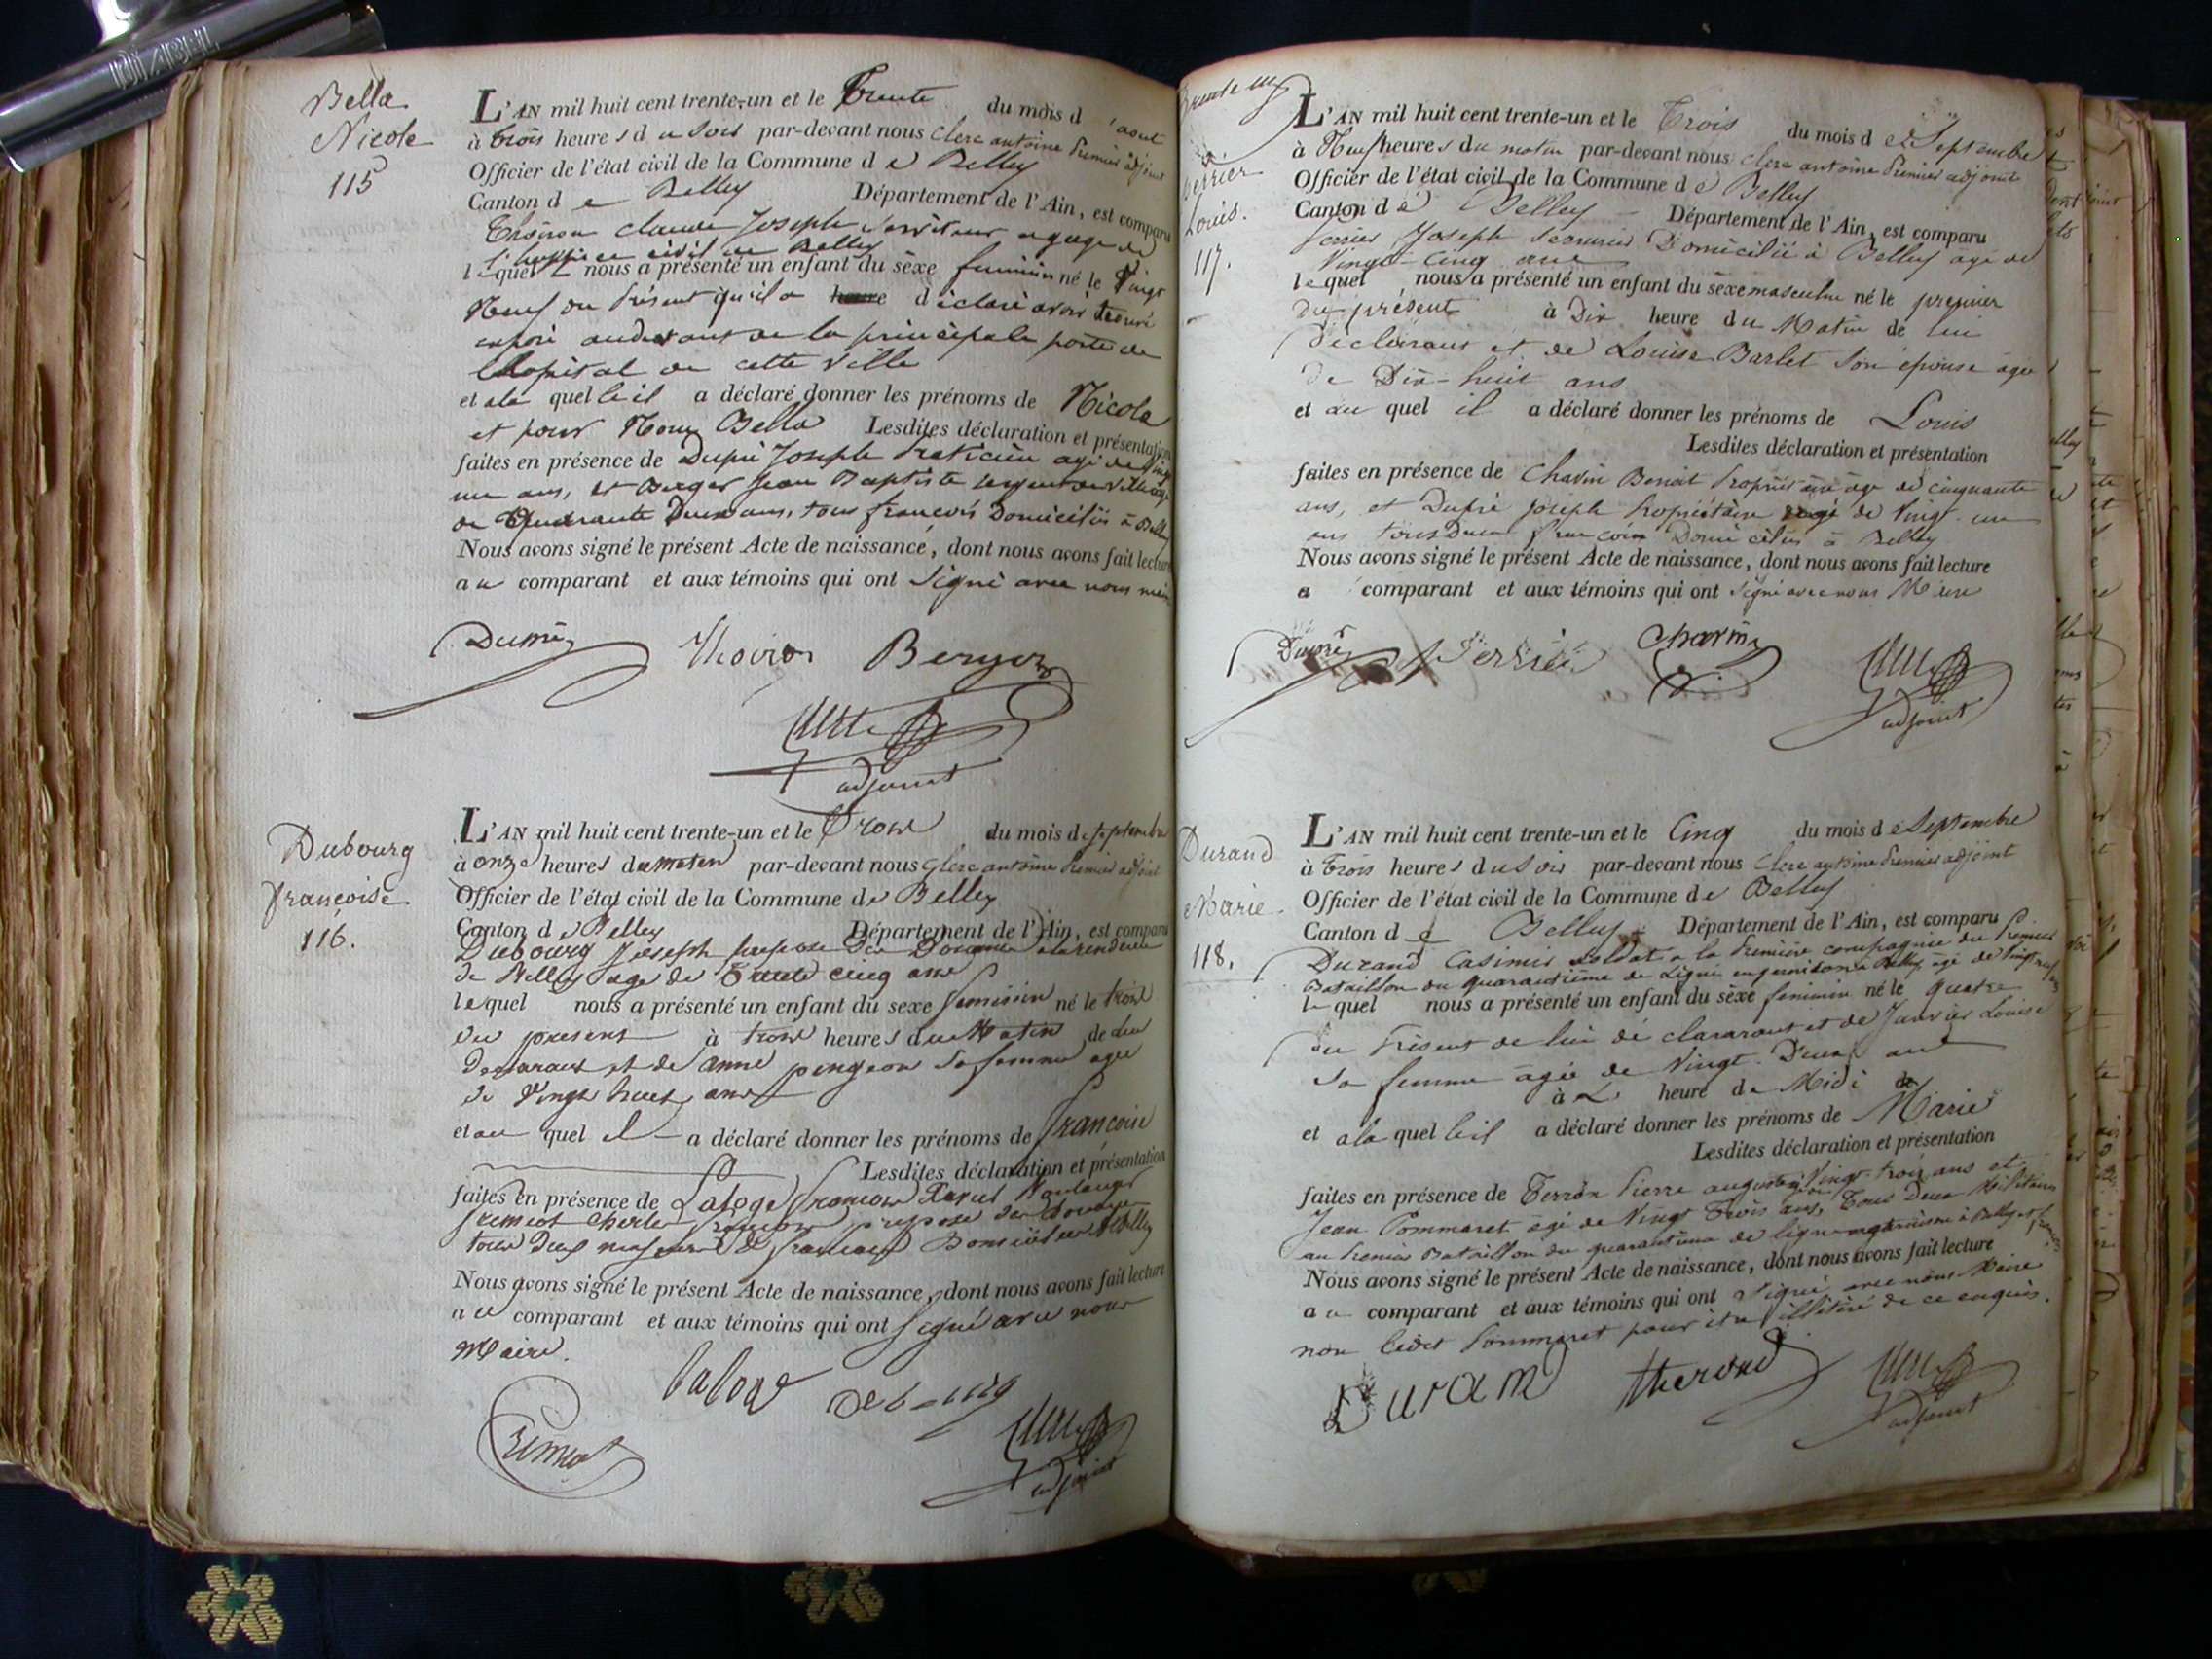 DIABEL
Bella
Nicole
115
L'AN mil huit cent trente-un et le Trente du mois d'aout
à Trois heures du Soir par-devant nous Clerc antoine Premier adjoint
Officier de l'état civil de la Commune de Belley
Canton de Belley Département de l'Ain, est comparu
Thoiron Claude Joseph Serviteur a gage de
l'hospice civil de Belley
lequel nous a présenté un enfant du sèxe feminin né le Vingt
Neuf du Présent qu'il a déclaré avoir trouvé
exposé audevant de la principale porte de
l'hopital de cette Ville
et ala quelle il a déclaré donner les prénoms de Nicole
et pour Nom Bella Lesdites déclaration et présentation
faites en présence de Dupré Joseph Praticien agé de vingt
un ans, et Berger Jean Baptiste sergent de Ville agé
de Quarante Deux ans, tous francois Domiciliés à Belley
Nous avons signé le présent Acte de naissance, dont nous avons fait lecture
au comparant et aux témoins qui ont Signé avec nous maire
Dupré Thoiron Berger
Clerc
adjoint
Dubourg
françoise
116.
L'AN mil huit cent trente-un et le Trois du mois de septembre
à onze heures du maten par-devant nous Clerc antoine Premier adjoint
Officier de l'état civil de la Commune de Belley
Canton de Belley Département de l'Ain, est comparu
Dubourg Joseph preposé des Douanes
de Belley age de Trente cinq ans
lequel nous a présenté un enfant du sexe feminin né le trois
du present à trois heures du Matin de lui
declarant et de anne pingeon sa femme agee
de Vingt huit ans
et au quel il a déclaré donner les prénoms de francoise
Lesdites déclaration et présentation
faites en présence de Laloge francois Boulanger
fremiot Charles preposé des Douanes
tous deux majeurs & francais Domicilies a Belley
Nous avons signé le présent Acte de naissance, dont nous avons fait lecture
au comparant et aux témoins qui ont signé avec nous
Maire.
laloge Debourg
fremiot
Clerc
adjoint
ferrier
Louis.
117.
L'AN mil huit cent trente-un et le Trois du mois de Septembre
à Neuf heures du matin par-devant nous Clerc antoine Premier adjoint
Officier de l'état civil de la Commune de Belley
Canton de Belley Département de l'Ain, est comparu
ferrier Joseph serrurier Domicilié à Belley agé de
Vingt-Cinq ans
lequel nous a présenté un enfant du sèxe masculin né le premier
du présent à Dix heure du Matin de lui
déclarant et de Louise Barlet Son épouse agée
de Dix-huit ans
et au quel il a déclaré donner les prénoms de Louis
Lesdites déclaration et présentation
faites en présence de Charin Benoit Propriétaire agé de cinquante
ans, et Dupré joseph Propriétaire de Vingt-un
ans tous Deux francois Domiciliés à Belley
Nous avons signé le présent Acte de naissance, dont nous avons fait lecture
a comparant et aux témoins qui ont signé avec nous Maire
Dupré ferrier Charin
Clerc
adjoint
Durand
Marie.
118.
L'AN mil huit cent trente-un et le Cinq du mois de Septembre
à Trois heures du Soir par-devant nous Clerc antoine Premier adjoint
Officier de l'état civil de la Commune de Belley
Canton de Belley Département de l'Ain, est comparu
Durand Casimir soldat a la Première compagnie du Premier
Bataillon du quarantième de Ligne en garnison a Belley agé de Vingt neuf ans
lequel nous a présenté un enfant du sèxe feminin né le quatre
du Présent de lui déclararant et de Janvier Louise
Sa femme agée de Vingt-Deux ans
à heure de Midi de
et ala quelle il a déclaré donner les prénoms de Marie
Lesdites déclaration et présentation
faites en présence de Terron Pierre augustin Vingt-trois ans et
Jean Pommaret agé de Vingt Trois ans, Tous Deux Militaires
au Premier Bataillon du quarantième de ligne en garnison à Belley
Nous avons signé le présent Acte de naissance, dont nous avons fait lecture
au comparant et aux témoins qui ont signé avec nous Maire
non ledit Pommaret pour être illitéré de ce enquis.
Duram therond
Clerc
adjoint